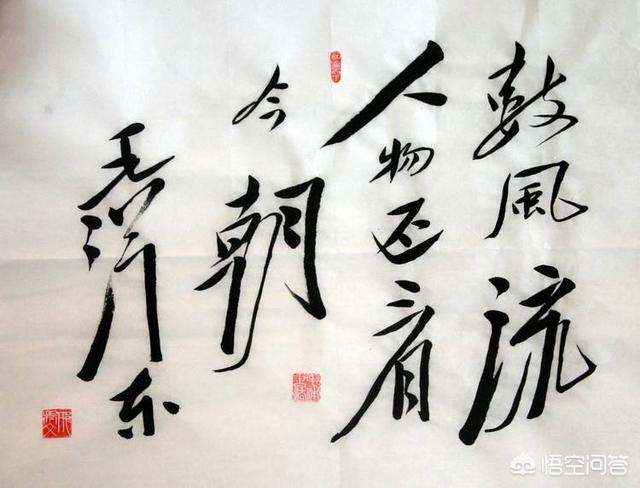 数風流
人物还看
今朝
毛泽东
悟空问答